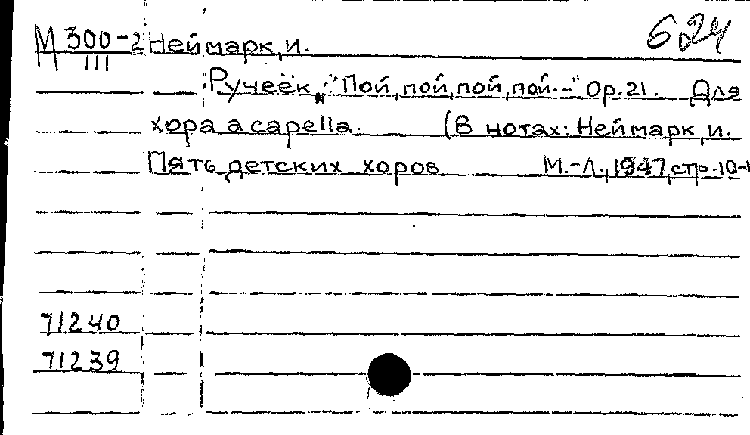 М 300-2 Неймарк, И. 624
III
Ручеёк, "Пой, пой, пой, пой..." Op.21. Для
хора a capella. (В нотах: Неймарк, И.
Пять детских хоров М.-Л., 1947, стр. 10-
71240
71239